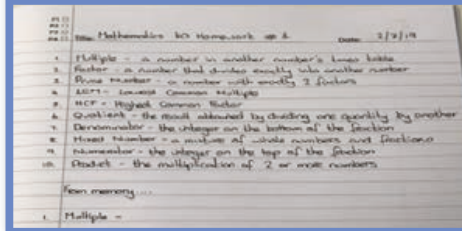 Title: Mathematics Homework # 1 Date: 2/9/19
1. Multiple - a number in another number's times table
2. Factor - a number that divides exactly into another number
3. Prime Number - a number with exactly 2 factors
4. LCM - Lowest Common Multiple
5. HCF - Highest Common Factor
6. Quotient - the result obtained by dividing one quantity by another
7. Denominator - the integer on the bottom of the fraction
8. Mixed Number - a mixture of whole numbers and fractions
9. Numerator - the integer on the top of the fraction
10. Product - the multiplication of 2 or more numbers
From memory....
1. Multiple -